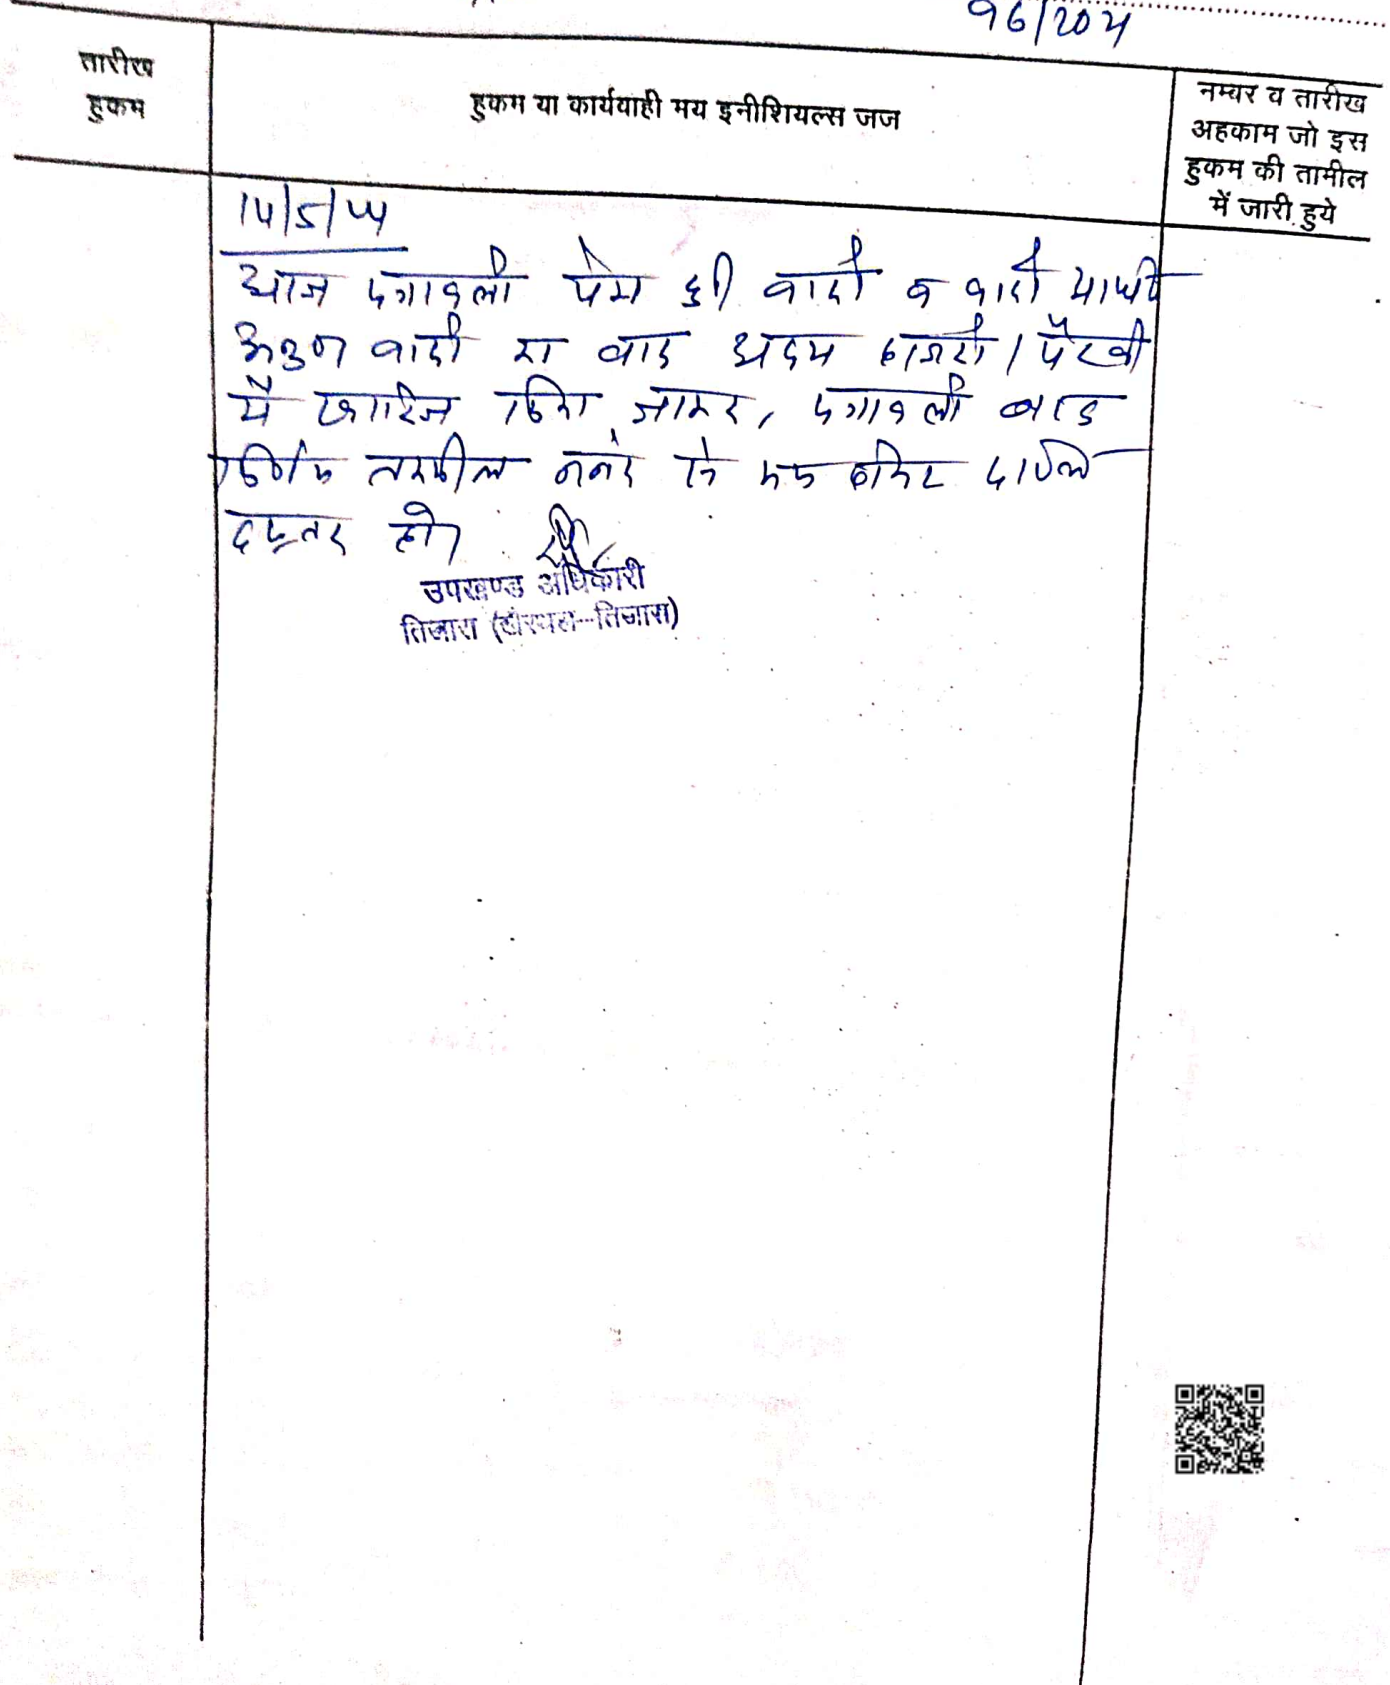 96/204
तारीख
हुकम
हुकम या कार्यवाही मय इनीशियल्स जज
नम्बर व तारीख
अहकाम जो इस
हुकम की तामील
में जारी हुये
आज पत्रावली पेश हुई वादी व वादी
वादी का वाद अदम हाजरी / पैरवी
में खारिज किया जाकर, पत्रावली बाद
तकमील नम्बर से कम होकर दाखिल
दफ्तर हो।
उपखण्ड अधिकारी
तिजारा (खैरथल-तिजारा)